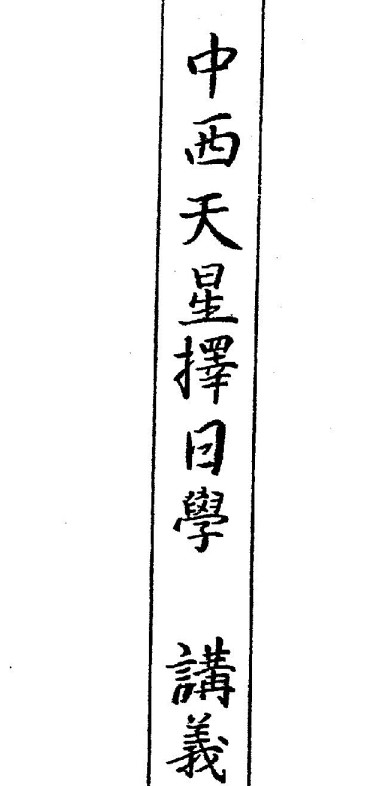 中西天星擇日學 講義